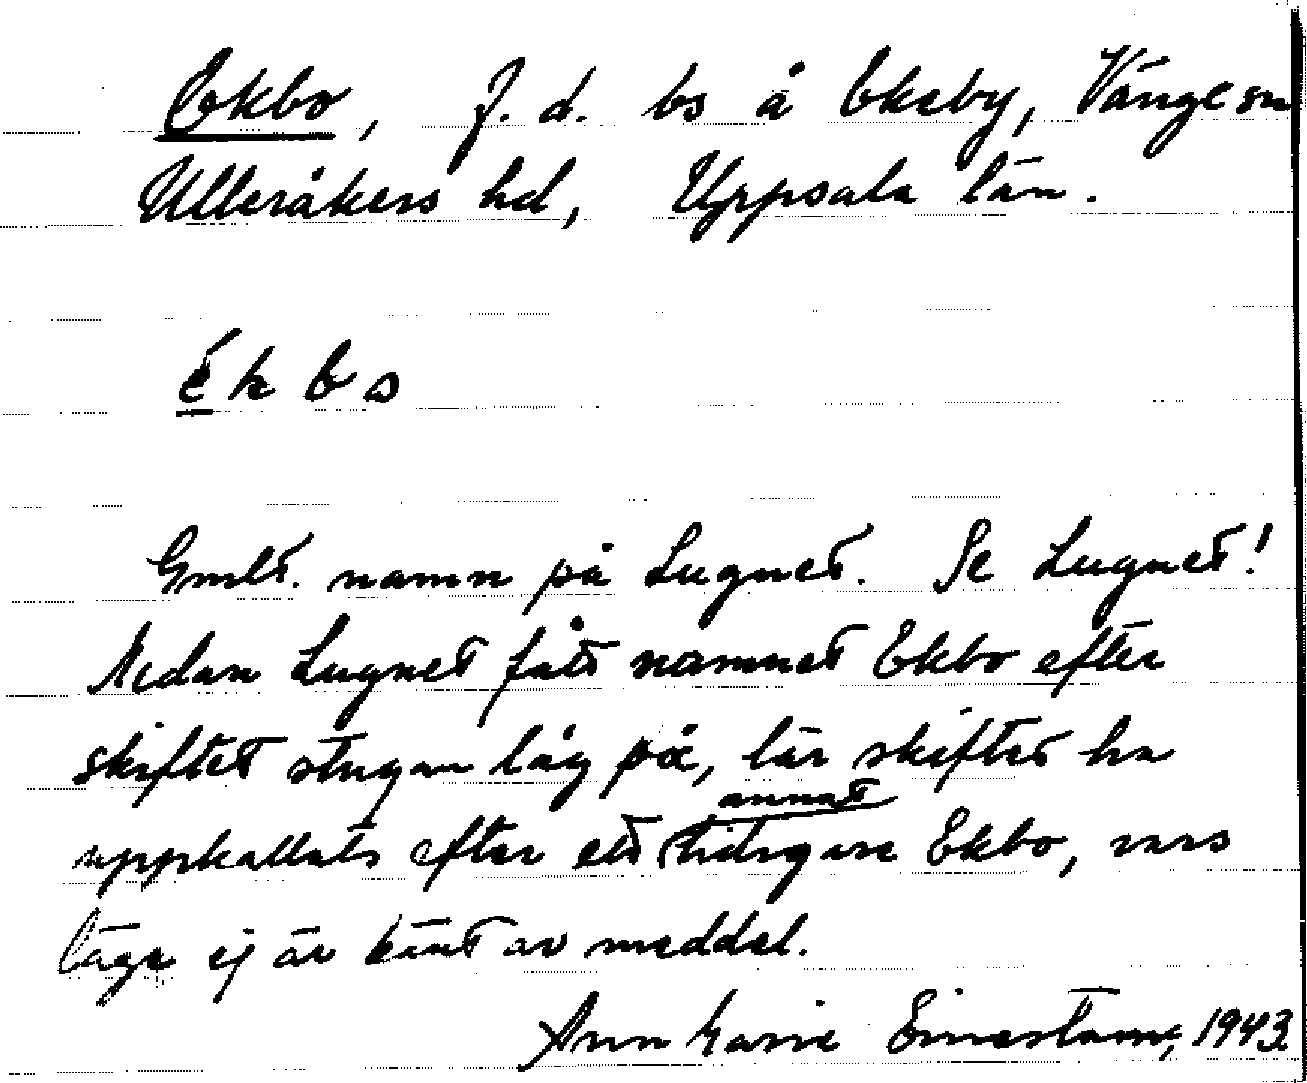 Ekbo, f.d. bs å Ekeby, Vänge sn
Ulleråkers hd, Uppsala län.
é k b o
Gmlt. namn på Lugnet. Se Lugnet!
Medan Lugnet fått namnet Ekbo efter
skiftet stugan låg på, lär skiftet ha
annat
uppkallats efter ett tidigare Ekbo, vars
läge ej är känt av meddel.
Ann Marie 1943.